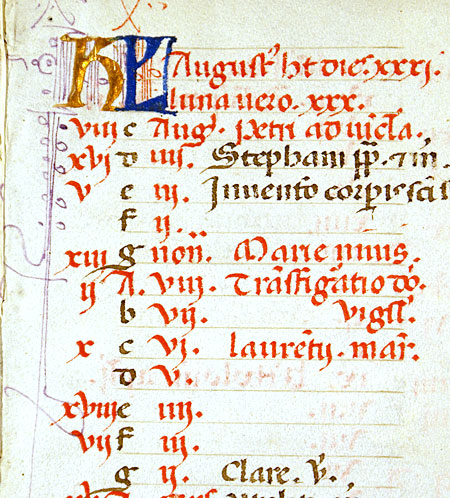 KL August' ht dies. xxxi.
luna uero. xxx.
viii c Aug'. Petri ad uicla.
xvi d iiii. Stephani pp. 7 m
v e iii. Inuentio corpis sci s
f ii.
xiii g non. Marie niuis.
ii A. viii. Trasfiguratio do.
b vii. vigil'.
x c vi. lauretii. mar.
d v.
xviii e iiii.
vii f iii.
g ii. Clare. v.